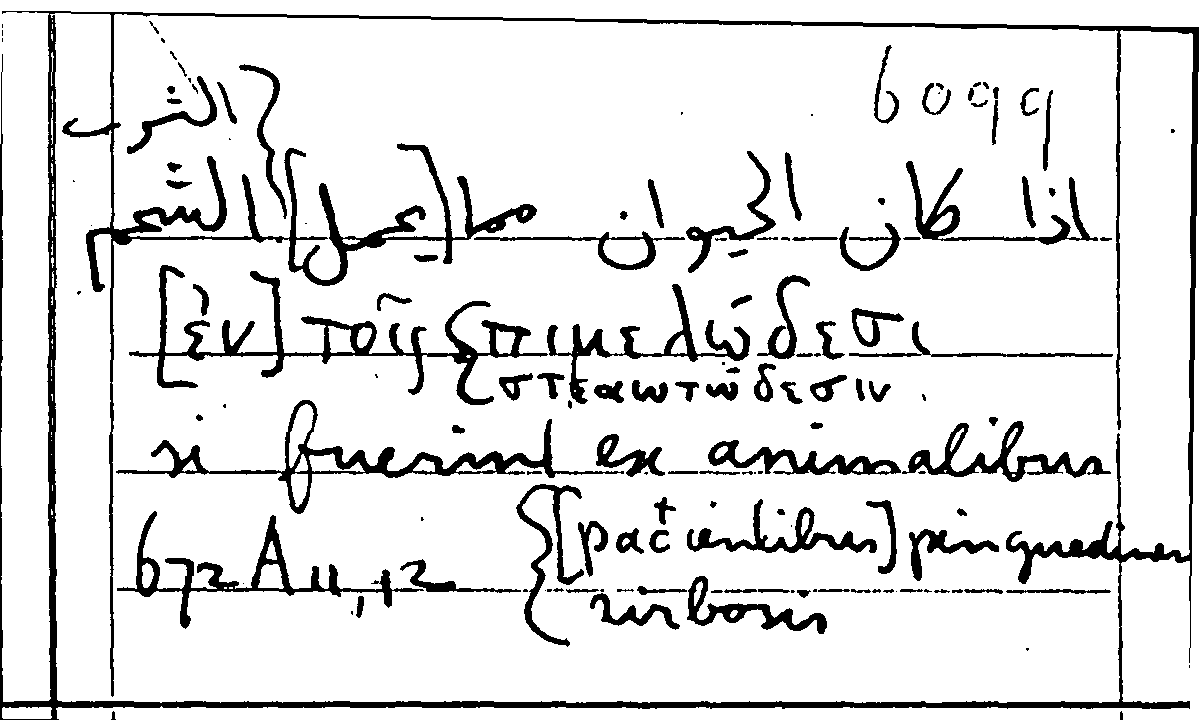 6099
الثرب
اذا كان الحيوان مما [يعمل] الشحم
[ἐν] τοῖς πιμελώδεσι
στεατώδεσιν
si fuerint ex animalibus
[pacientibus] pinguedinem
672 A 11, 12 zirbosis